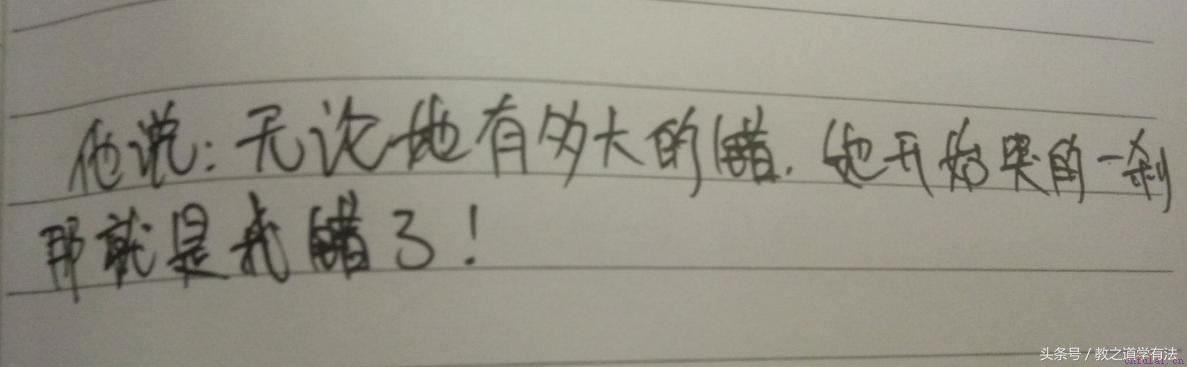 他说:无论她有多大的错,她开始哭的一刹
那就是我错了!
头条号/教之道学有法